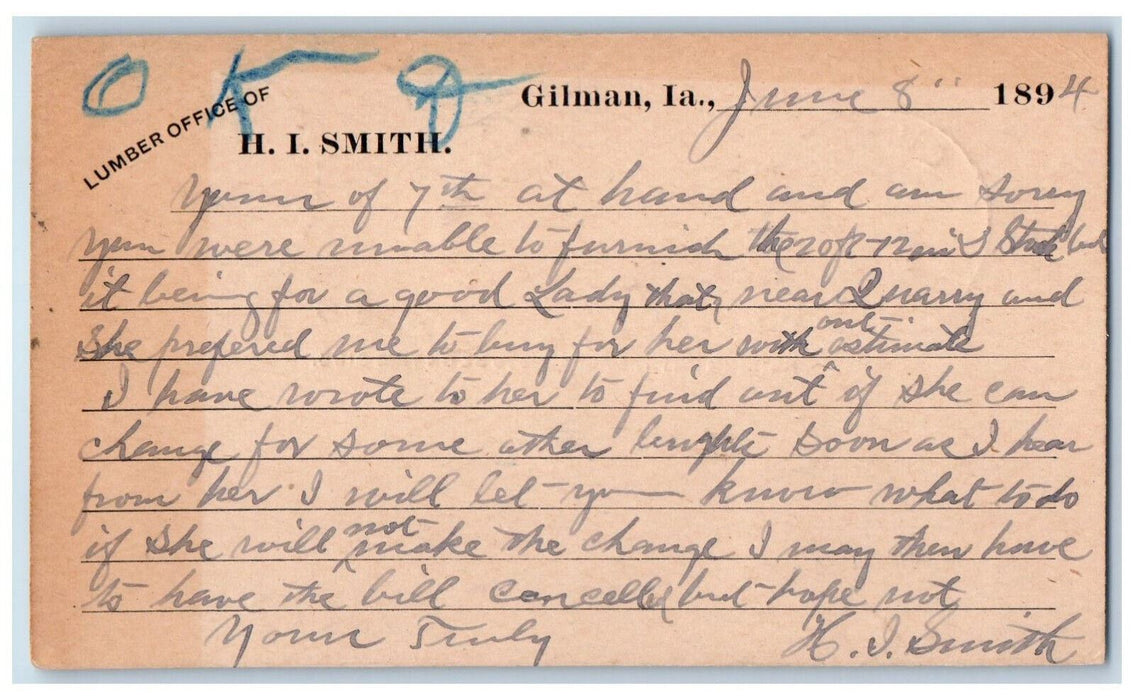 O K
LUMBER OFFICE OF
H. I. SMITH.
Gilman, Ia., June 8" 1894
Yours of 7th at hand and am sorry
you were unable to furnish the 20 ft 12 in but
it being for a good Lady that near Quarry and
She prefered me to buy for her with out estimate
I have wrote to her to find out if she can
change for some other lenght Soon as I hear
from her I will let you know what to do
if She will not make the change I may then have
to have the bill cancelled but hope not
Yours Truly H. I. Smith